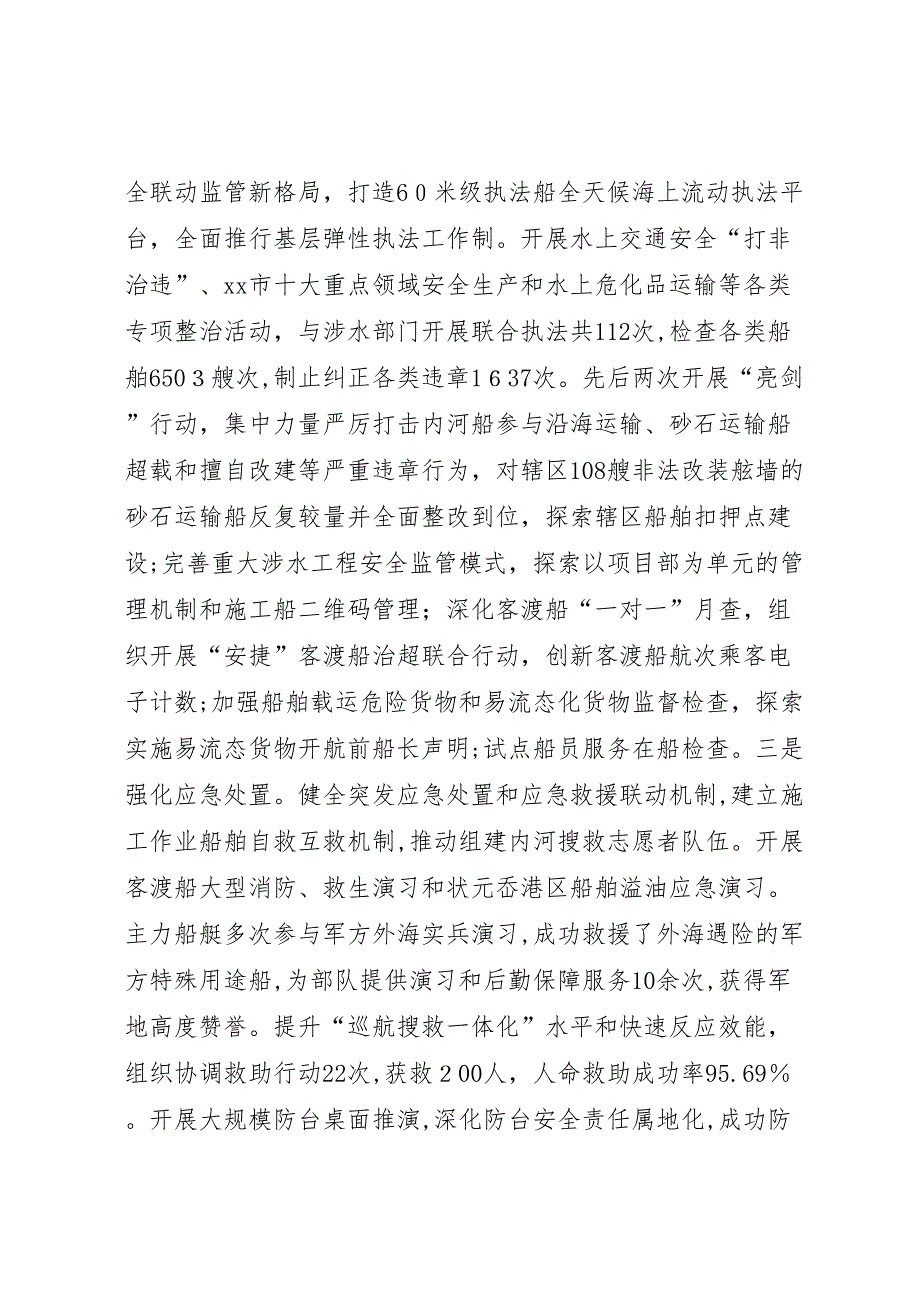 全联动监管新格局，打造6０米级执法船全天候海上流动执法平
台，全面推行基层弹性执法工作制。开展水上交通安全“打非
治违”、xx市十大重点领域安全生产和水上危化品运输等各类
专项整治活动，与涉水部门开展联合执法共112次,检查各类船
舶650３艘次,制止纠正各类违章1６37次。先后两次开展“亮剑
”行动，集中力量严厉打击内河船参与沿海运输、砂石运输船
超载和擅自改建等严重违章行为，对辖区108艘非法改装舷墙的
砂石运输船反复较量并全面整改到位，探索辖区船舶扣押点建
设;完善重大涉水工程安全监管模式，探索以项目部为单元的管
理机制和施工船二维码管理；深化客渡船“一对一”月查，组
织开展“安捷”客渡船治超联合行动，创新客渡船航次乘客电
子计数;加强船舶载运危险货物和易流态化货物监督检查，探索
实施易流态货物开航前船长声明;试点船员服务在船检查。三是
强化应急处置。健全突发应急处置和应急救援联动机制,建立施
工作业船舶自救互救机制,推动组建内河搜救志愿者队伍。开展
客渡船大型消防、救生演习和状元岙港区船舶溢油应急演习。
主力船艇多次参与军方外海实兵演习,成功救援了外海遇险的军
方特殊用途船,为部队提供演习和后勤保障服务10余次,获得军
地高度赞誉。提升“巡航搜救一体化”水平和快速反应效能，
组织协调救助行动22次,获救２00人，人命救助成功率95.69％
。开展大规模防台桌面推演,深化防台安全责任属地化,成功防